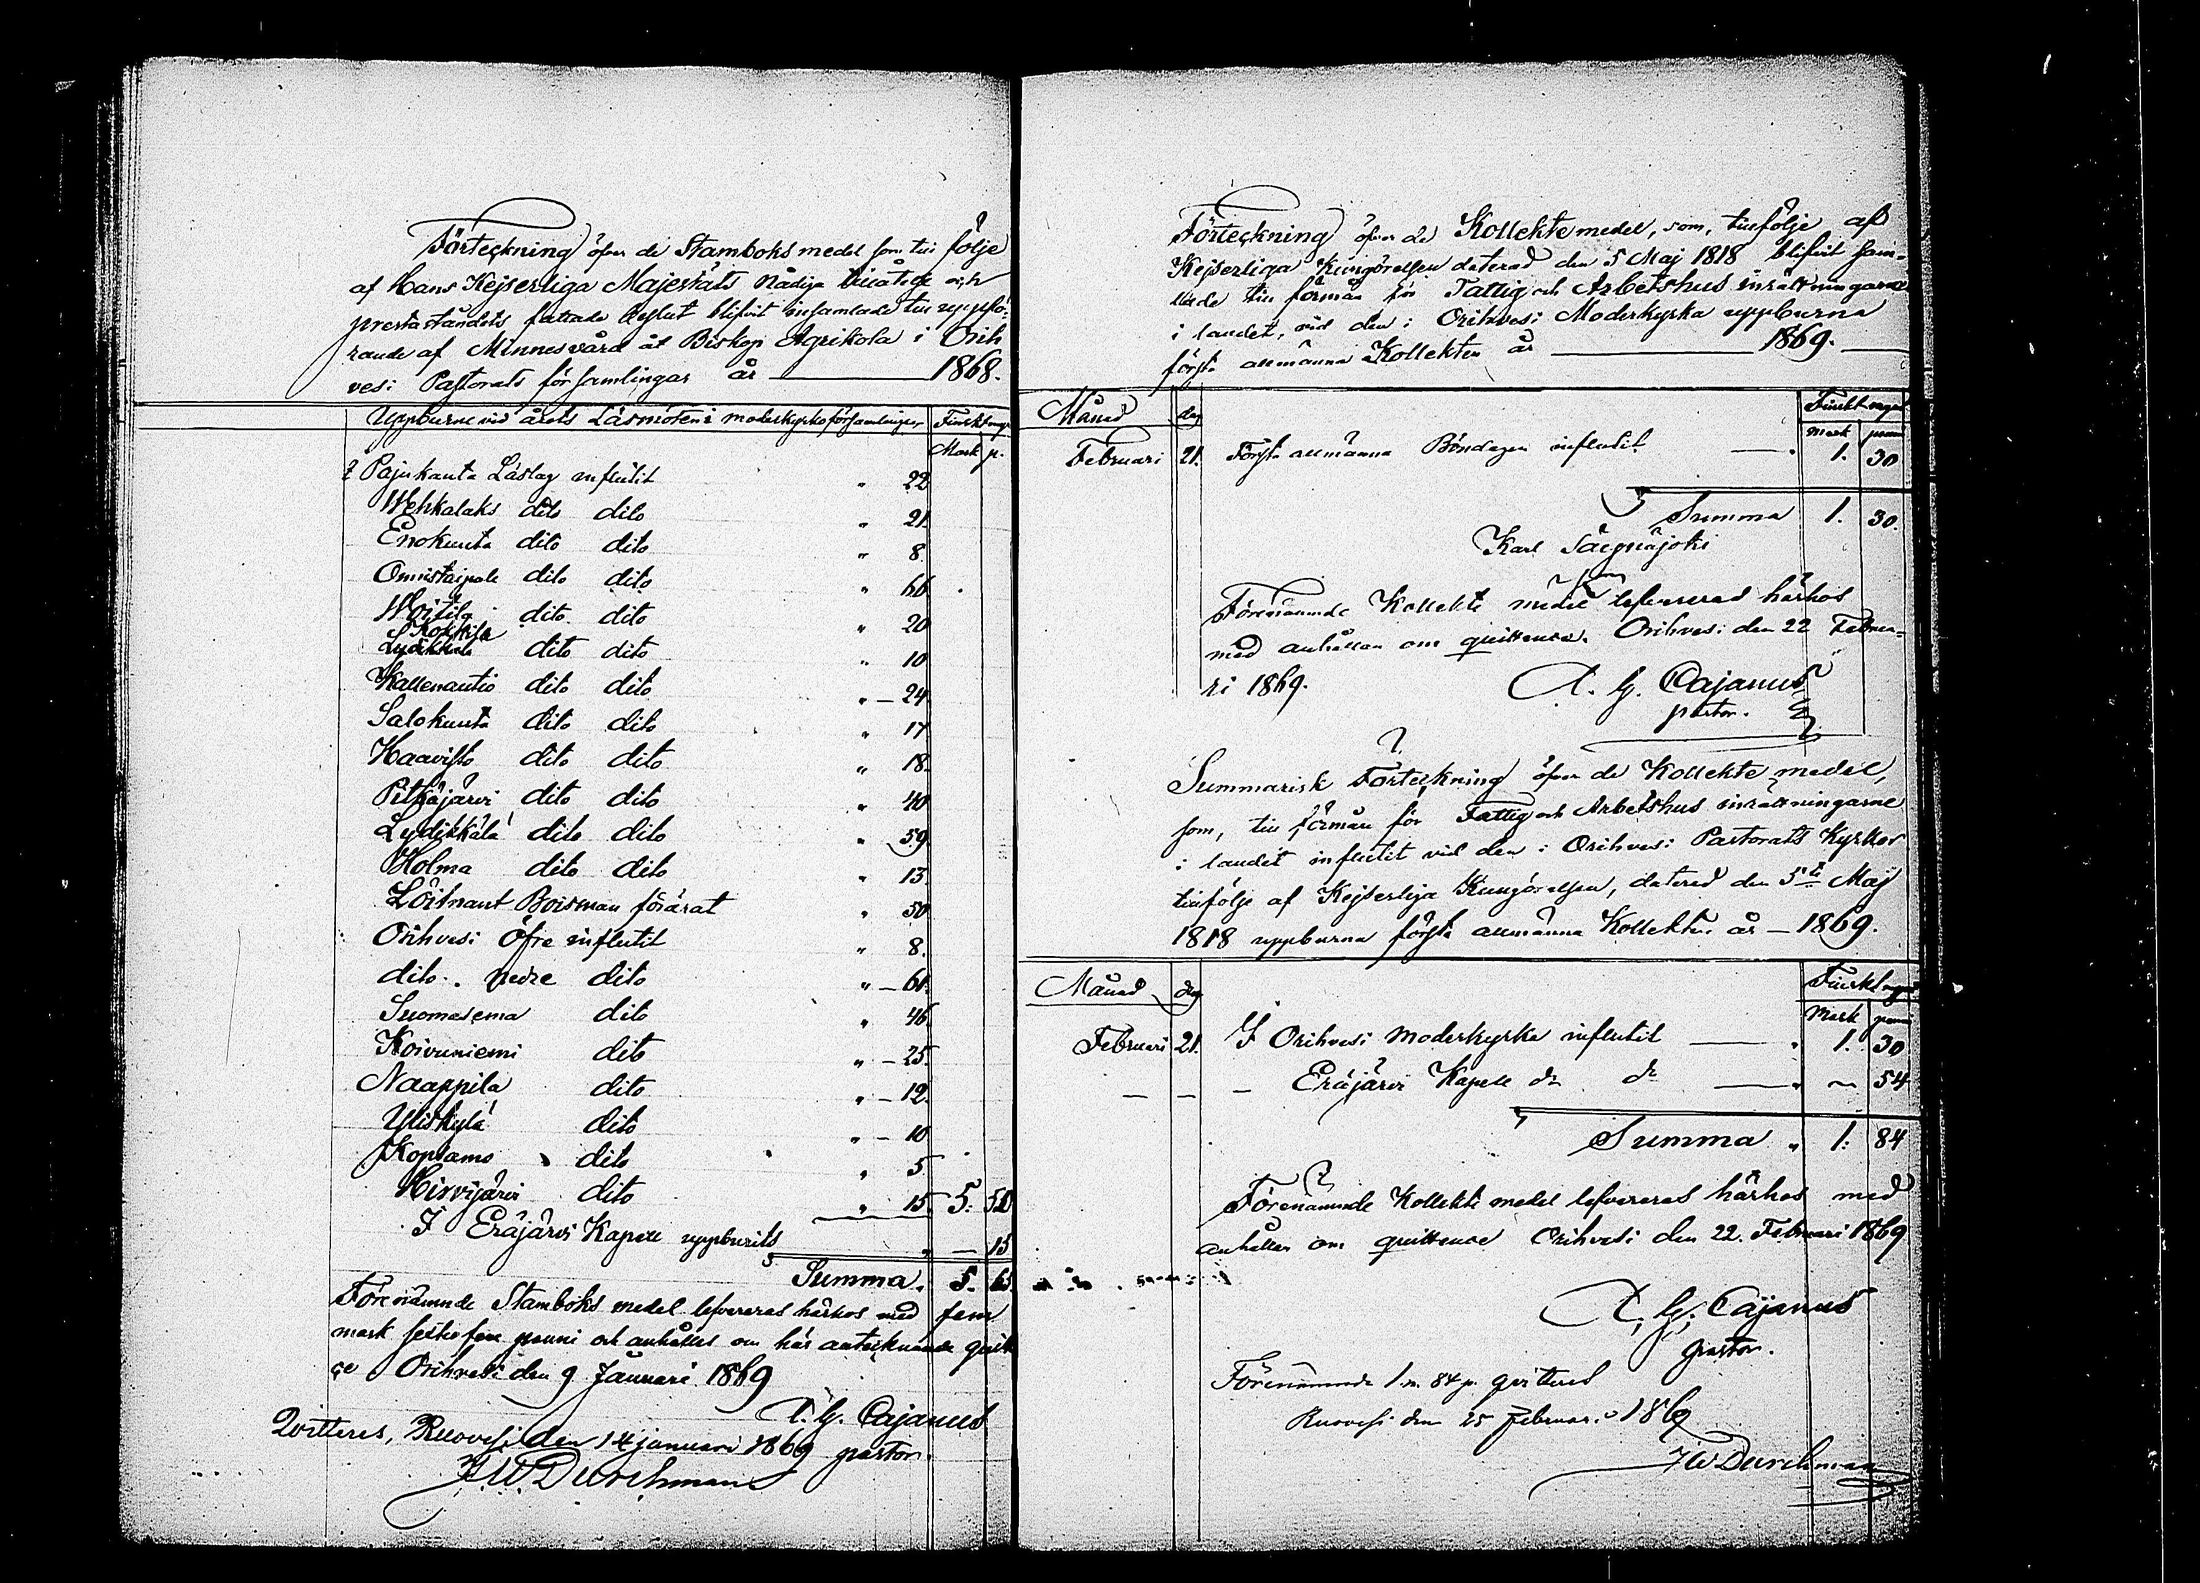 Förteckning öfver de Stamboks medel som till följe
af Hans Kejserliga Majestäts Nådiga tillåtelse och
prestaståndets fattade beslut blifvit insamlade till uppfö-
rande af Minnesvård åt Biskop Agrikola i Orih
vesi Pastorats församlingar år 1868.
Uppburne vid årets Läsmöten i moderkyrkoförsamlingen Finskt mynt
Mark p.
I Pajukanta Läslag influtit " 22
Wehkalaks dito dito " 21.
Enokunta dito dito " 8.
Onnistaipale dito dito " 66
Woitila dito dito " 20
Kokkila dito dito " 10
Kallenautio dito dito " — 24
Salokunta dito dito " 17
Haavisto dito dito " 18.
Pitkäjärvi dito dito " 40
Lydikkälä dito dito " 59
Holma dito dito " 13.
Löitnant Boisman förärat " 50
Orihvesi Öfre influtit " 8.
dito. nedre dito " — 61.
Suomasema dito " 46.
Koivuniemi dito " — 25.
Naappila dito " — 12.
Yliskylä dito " — 10
Koplamo dito " 5
Hirvijärvi dito " 15. 5. 50
I Eräjärvi Kapell uppburits " — 15
Summa. 5. 65.
Förenämnde Stamboks medel lefvereras härhos med fem
mark sextiofem penni och anhålles om här antecknande quitt
ce Orihvesi den 9 Januari 1869
A. G. Cajanus
pastor.
Qvitteres, Ruovesi den 14 januari 1869
F. W. Durchman
Förteckning öfver de Kollekte medel, som, tillfölje af
Kejserliga Kungörelsen daterad den 5 Maj 1818 blifvit sam-
lade till förmån för Fattig och Arbetshus inrättningarne
i landet, vid den i Orihvesi Moderkyrka uppburna
första allmänna Kollekten år 1869.
Månad dag Finskt mynt
Mark penni
Februari 21. Första allmänna Böndagen influtit — " 1. 30
Summa 1. 30.
Karl Särgnäjoki
Förenämnde Kollekte medel lefvereras härhos
med anhållan om quittence. Orihvesi den 22 Februa-
ri 1869.
A. G. Cajanus
pastor.
Summarisk Förteckning öfver de Kollekte medel,
som, till förmån för Fattig och Arbetshus inrättningarne
i landet influtit vid den i Orihvesi Pastorats Kyrkor
tillfölje af Kejserliga Kungörelsen, daterad den 5te Maj
1818 uppburna första allmänna Kollekten år — 1869.
Månad dag Finskt mynt
Mark penni
Februari 21. I Orihvesi Moderkyrka influtit — " 1. 30
— — — Eräjärvi Kapell do do — " — 54
Summa " 1. 84
Förenämnde Kollekte medel lefvereras härhos med
anhållan om quittence Orihvesi den 22. Februari 1869
A. G. Cajanus
pastor.
Förenämnde 1 m. 84 p. qvitteras
Ruovesi den 25 Februari 1869
F W Durchman